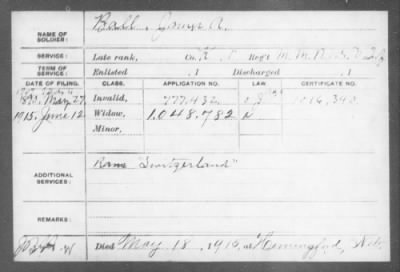 NAME OF SOLDIER: Ball,
SERVICE: Late rank, Co. Reg't M. M.
TERM OF SERVICE: Enlisted , 1 Discharged , 1
DATE OF FILING. CLASS. APPLICATION NO. LAW. CERTIFICATE NO.
May 27, Invalid, 777,432
1915, June 12. Widow, 1.048.782
Minor,
ADDITIONAL SERVICES: Ram "Switzerland"
REMARKS:
Died May 18, 1915, at Hemingford, Neb